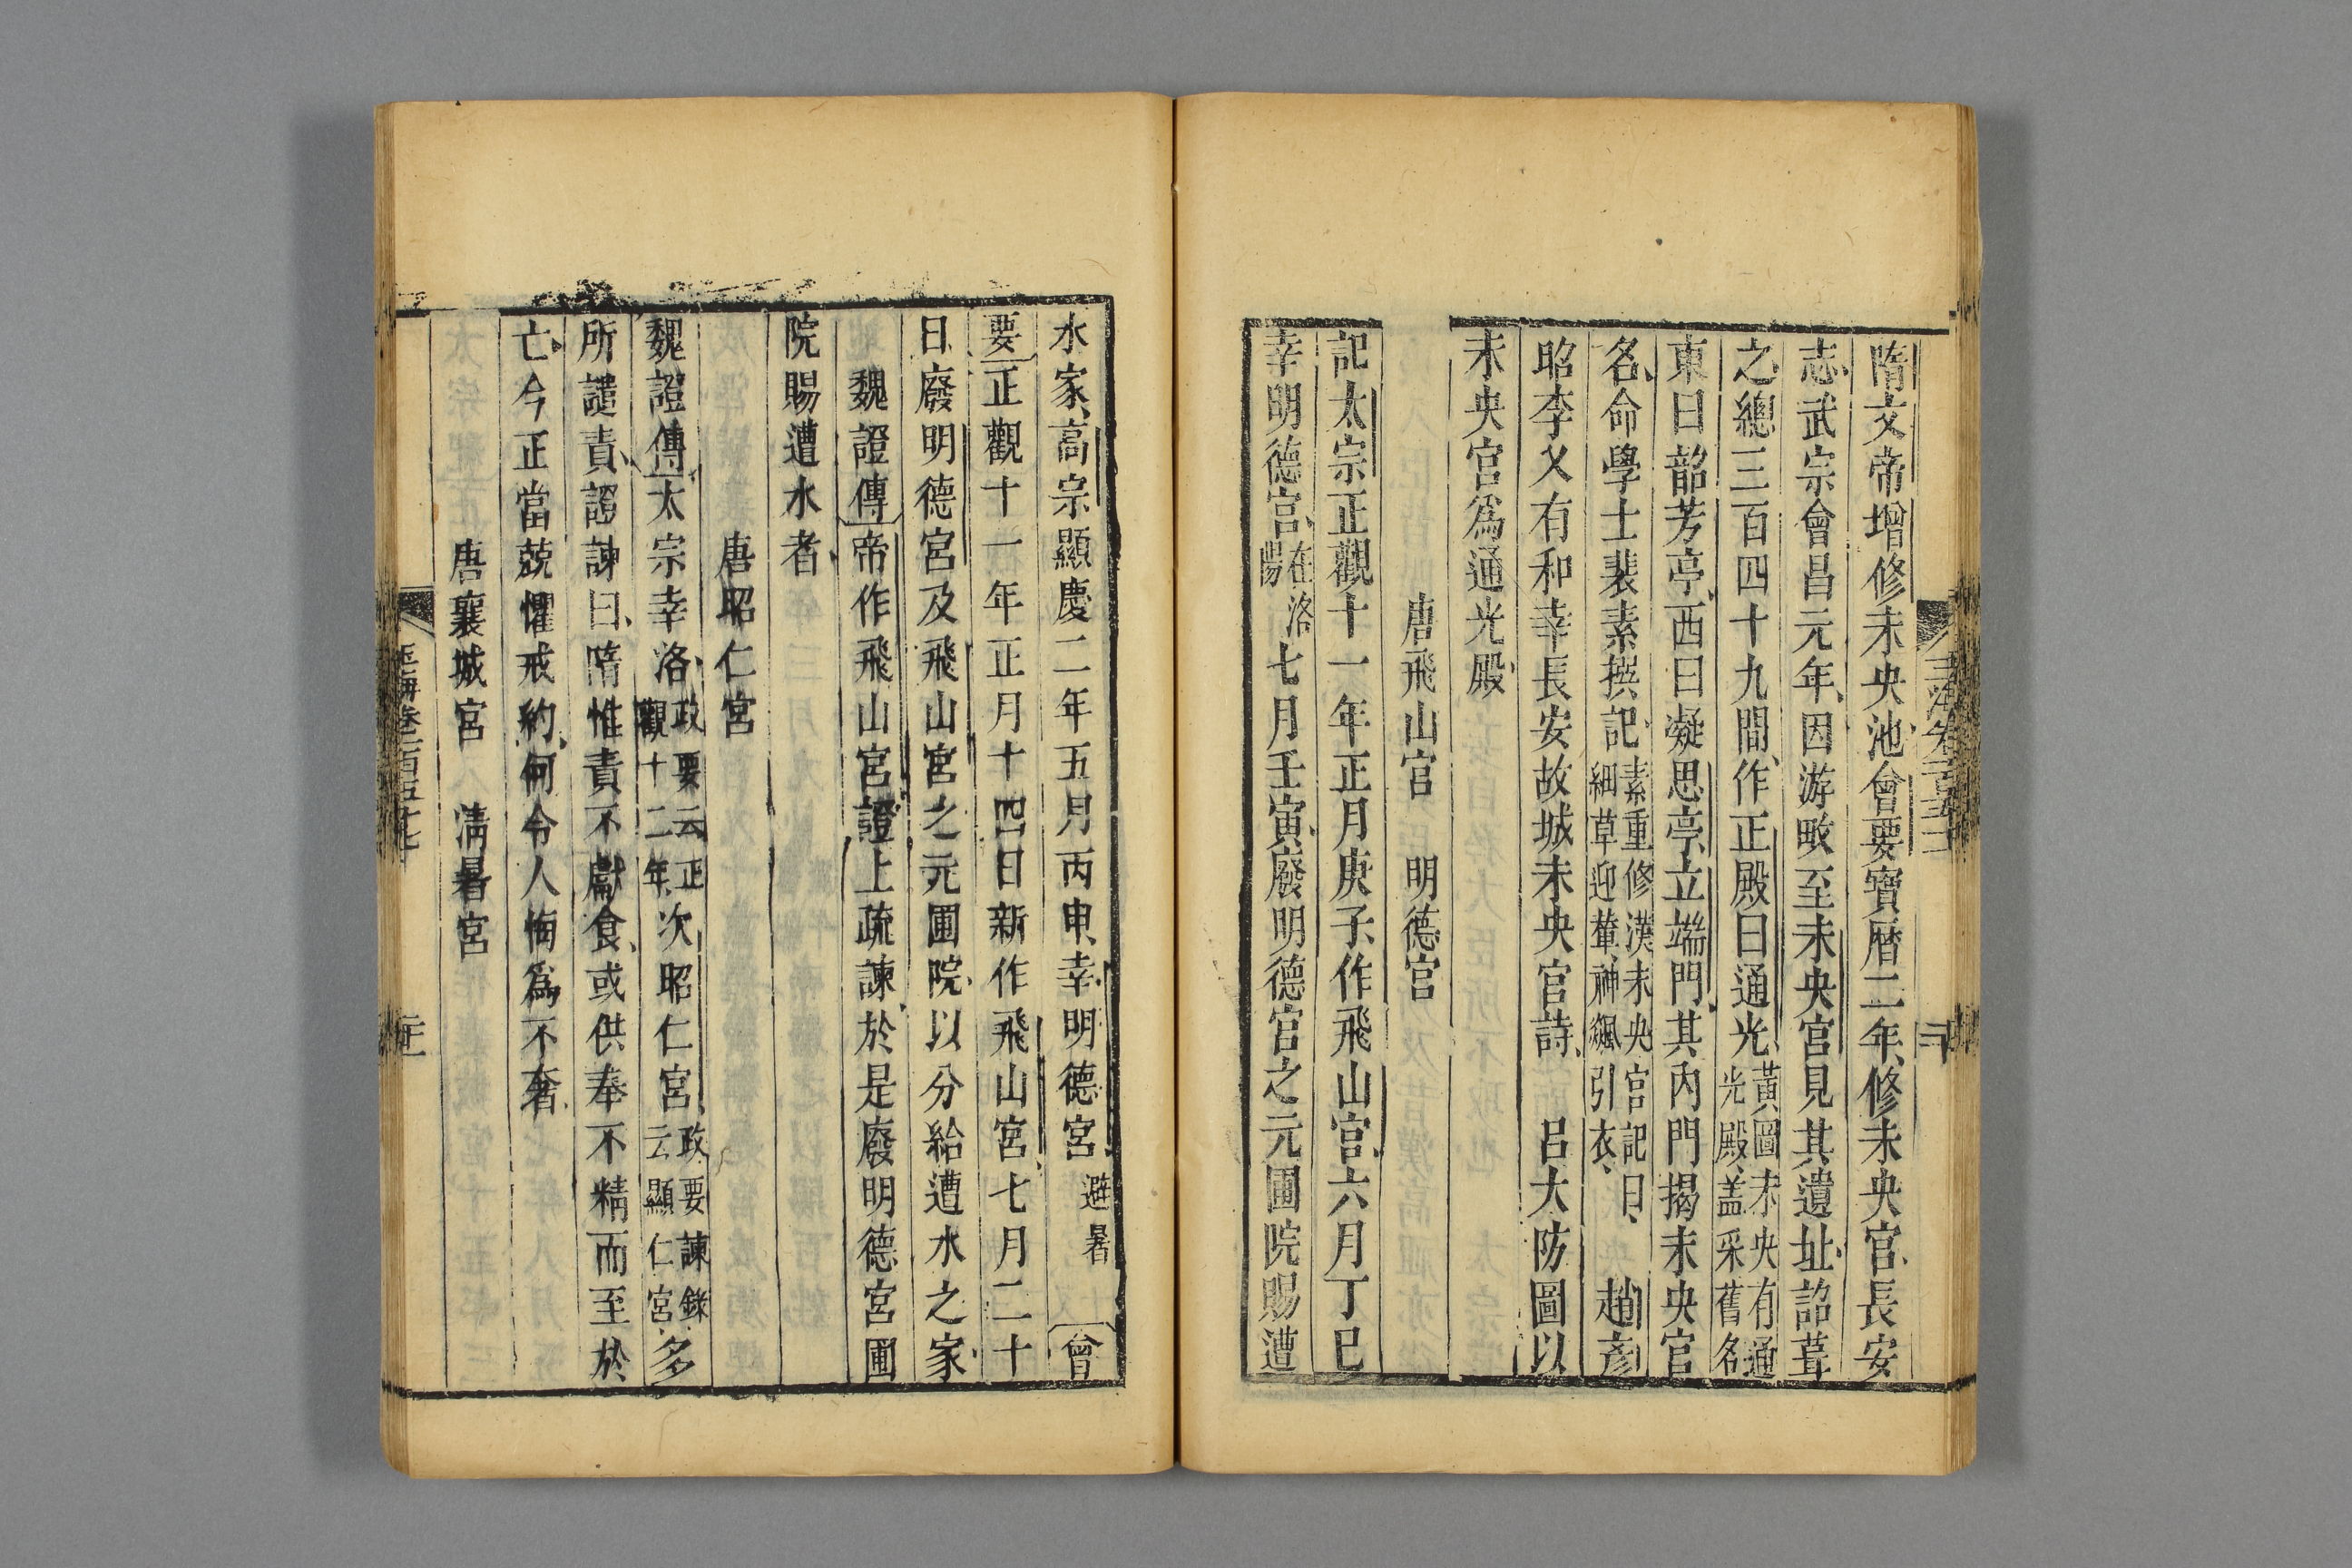 隋文帝增修未央池會要寶曆二年修未央宫長安
志武宗會昌元年因游畋至未央宫見其遺址詔葺
之總三百四十九間作正殿曰通光黃圖未央有通光殿盖采舊名
東曰韶芳亭西曰凝思亭立端門其内門揭未央宫
名命學士裴素撰記素重修漢未央宫記曰細草迎輦神飆引衣趙彥
昭李乂有和幸長安故城未央宫詩吕大防圖以
未央宫爲通光殿
唐飛山宫 明德宫
記太宗正觀十一年正月庚子作飛山宫六月丁巳
幸明德宫在洛陽七月壬寅廢明德宫之元圃院賜遭
水家高宗顯慶二年五月丙申幸明德宮避暑會
要正觀十一年正月十四日新作飛山宮七月二十
日廢明德宮及飛山宮之元圃院以分給遭水之家
魏證傳帝作飛山宮證上疏諫於是廢明德宮圃
院賜遭水者
唐昭仁宮
魏證傳太宗幸洛政要云正觀十二年次昭仁宮政要諫錄云顯仁宮多
所譴責證諫曰隋惟責不獻食或供奉不精而至於
亡今正當兢懼戒約何令人悔爲不奢
唐襄城宮 清暑宮
玉海卷一百五十七
二十一